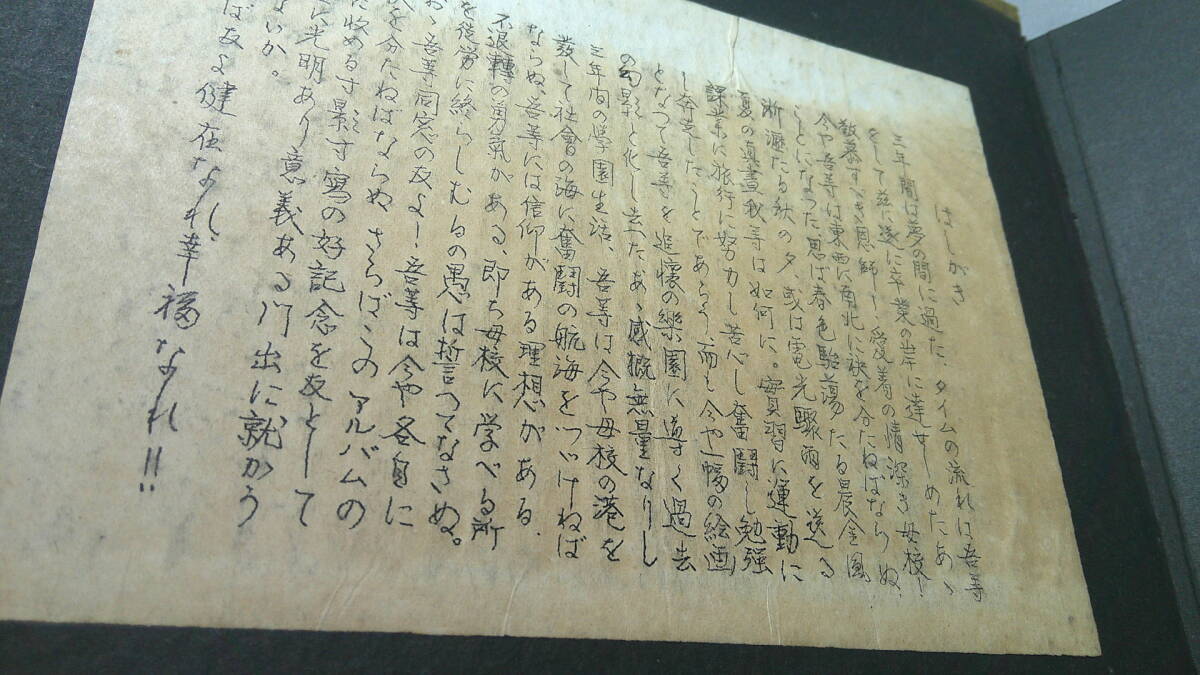 はしがき
三年間は夢の間に過ぎた、タイムの流れは吾等
をして茲に遂に卒業の岸に達せしめたあゝ
敬慕すべき恩師!愛着の情深き母校!
今や吾等は東西に南北に袂を分たねばならぬ
ことになつた思ば春色駘蕩たる晨金風
淅瀝たる秋の夕、或は電光驟雨を送る
夏の真晝秋等は如何に。實習に運動に
課業に旅行に努力し苦心し奮鬪し勉強
し奔走したことであらう、而も今や一幅の絵画
となつて吾等を追懐の樂園に導く過去
の幻影と化し去つたあゝ感慨無量なりし
三年内の学園生活、吾等は今や母校の港を
發して社會の海に奮鬪の航海をつゞけねば
ならぬ、吾等には信仰がある理想がある
不退轉の勇氣がある、即ち母校に学べる所
を徒労に終らしむるの愚は誓つてなさぬ。
吾等同窓の友よ!吾等は今や各自に
を分たねばならぬ さらばこのアルバムの
に收める寸影寸寫の好記念を友として
に光明あり意義ある門出に就かう
ないか。
ば友よ健在なれ、幸福なれ!!